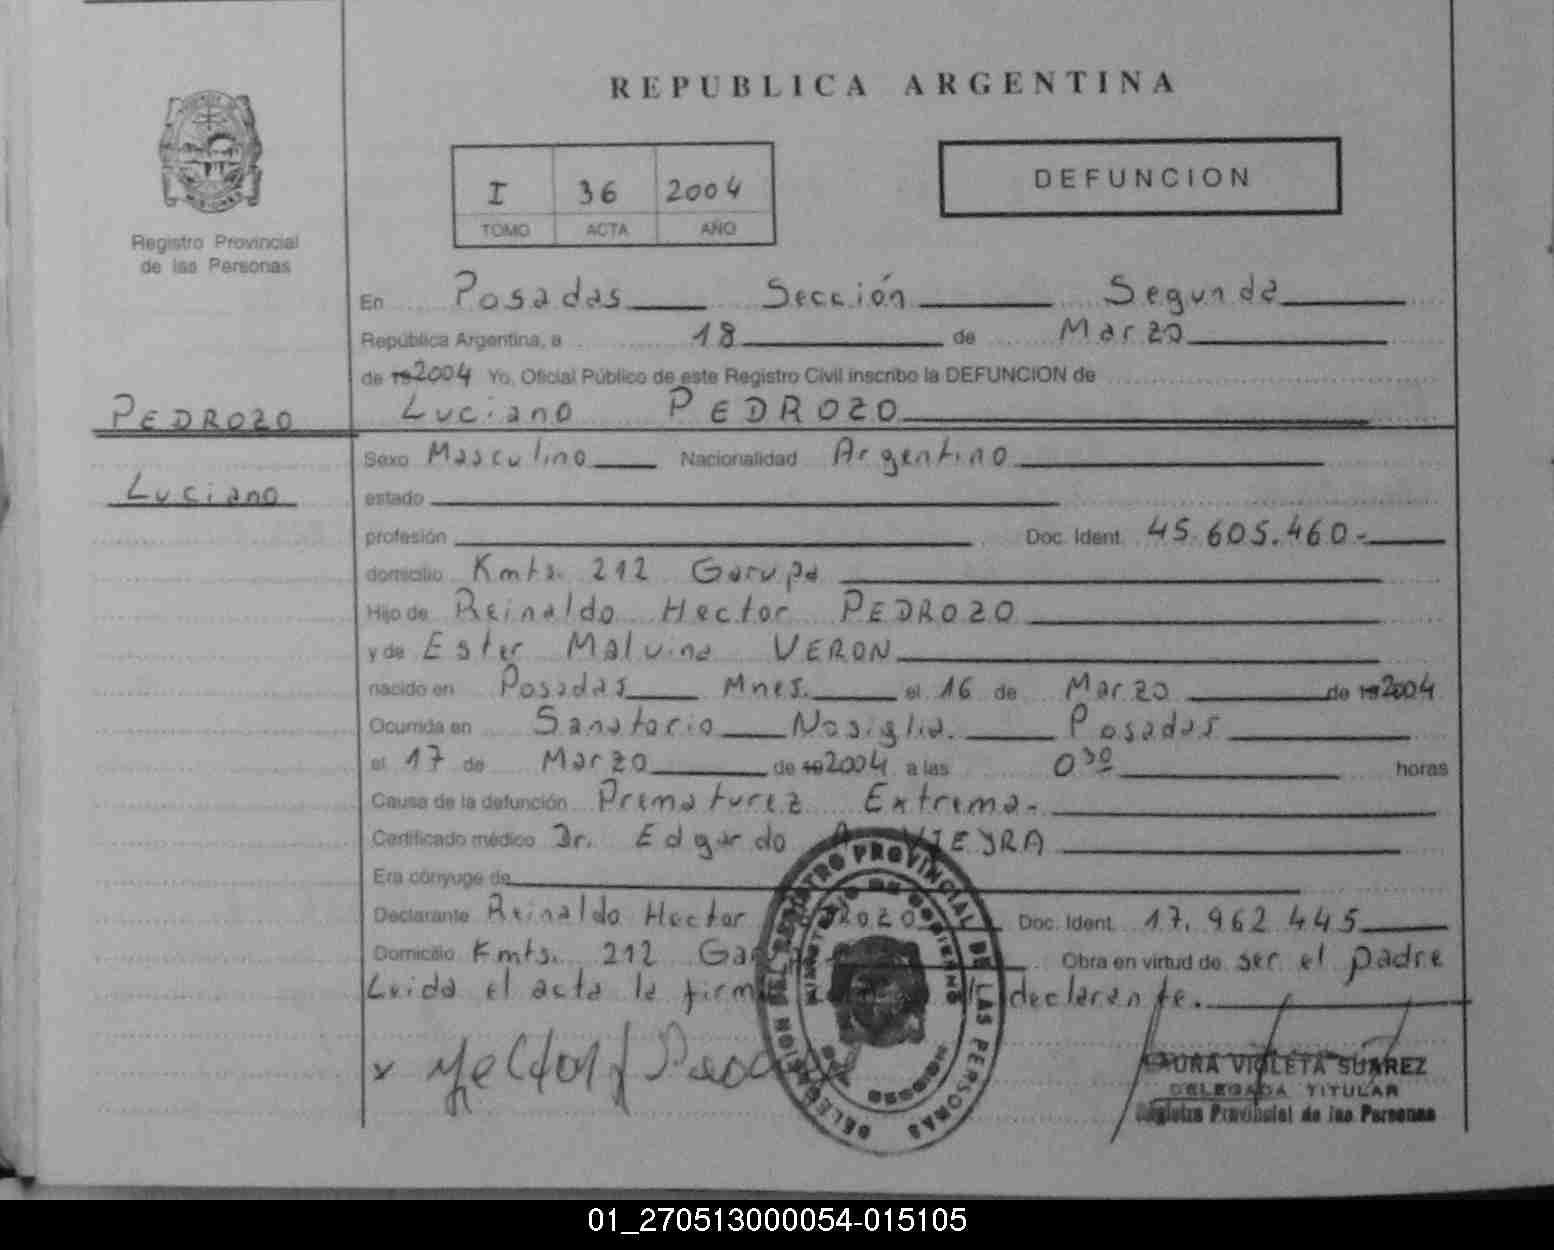 REPUBLICA ARGENTINA
I 36 2004
TOMO ACTA AÑO
DEFUNCION
Registro Provincial
de las Personas
En Posadas Sección Segunda
República Argentina, a 18 de Marzo
de 19 2004 Yo, Oficial Público de este Registro Civil inscribo la DEFUNCION de
PEDROZO
Luciano PEDROZO
Sexo Masculino Nacionalidad Argentino
Luciano
estado
profesión Doc. Ident. 45.605.460.-
domicilio Kmts. 212 Garupa
Hijo de Reinaldo Hector PEDROZO
y de Ester Malvina VERON
nacido en Posadas Mnes. el 16 de Marzo de 19 2004
Ocurrida en Sanatorio Nosiglia. Posadas
el 17 de Marzo de 19 2004 a las 0 30 horas
Causa de la defunción Prematurez Extrema.-
Certificado médico Dr. Edgardo A. VIEYRA
Era cónyuge de
Declarante Reinaldo Hector Doc. Ident. 17.962.445
Domicilio Kmts. 212 Obra en virtud de ser el padre
Leida el acta la declarante.
x Hector
DELEGACION DEL REGISTRO PROVINCIAL DE LAS PERSONAS
MINISTERIO DE GOBIERNO
LAURA VIOLETA SUAREZ
DELEGADA TITULAR
Registro Provincial de las Personas
01_270513000054-015105